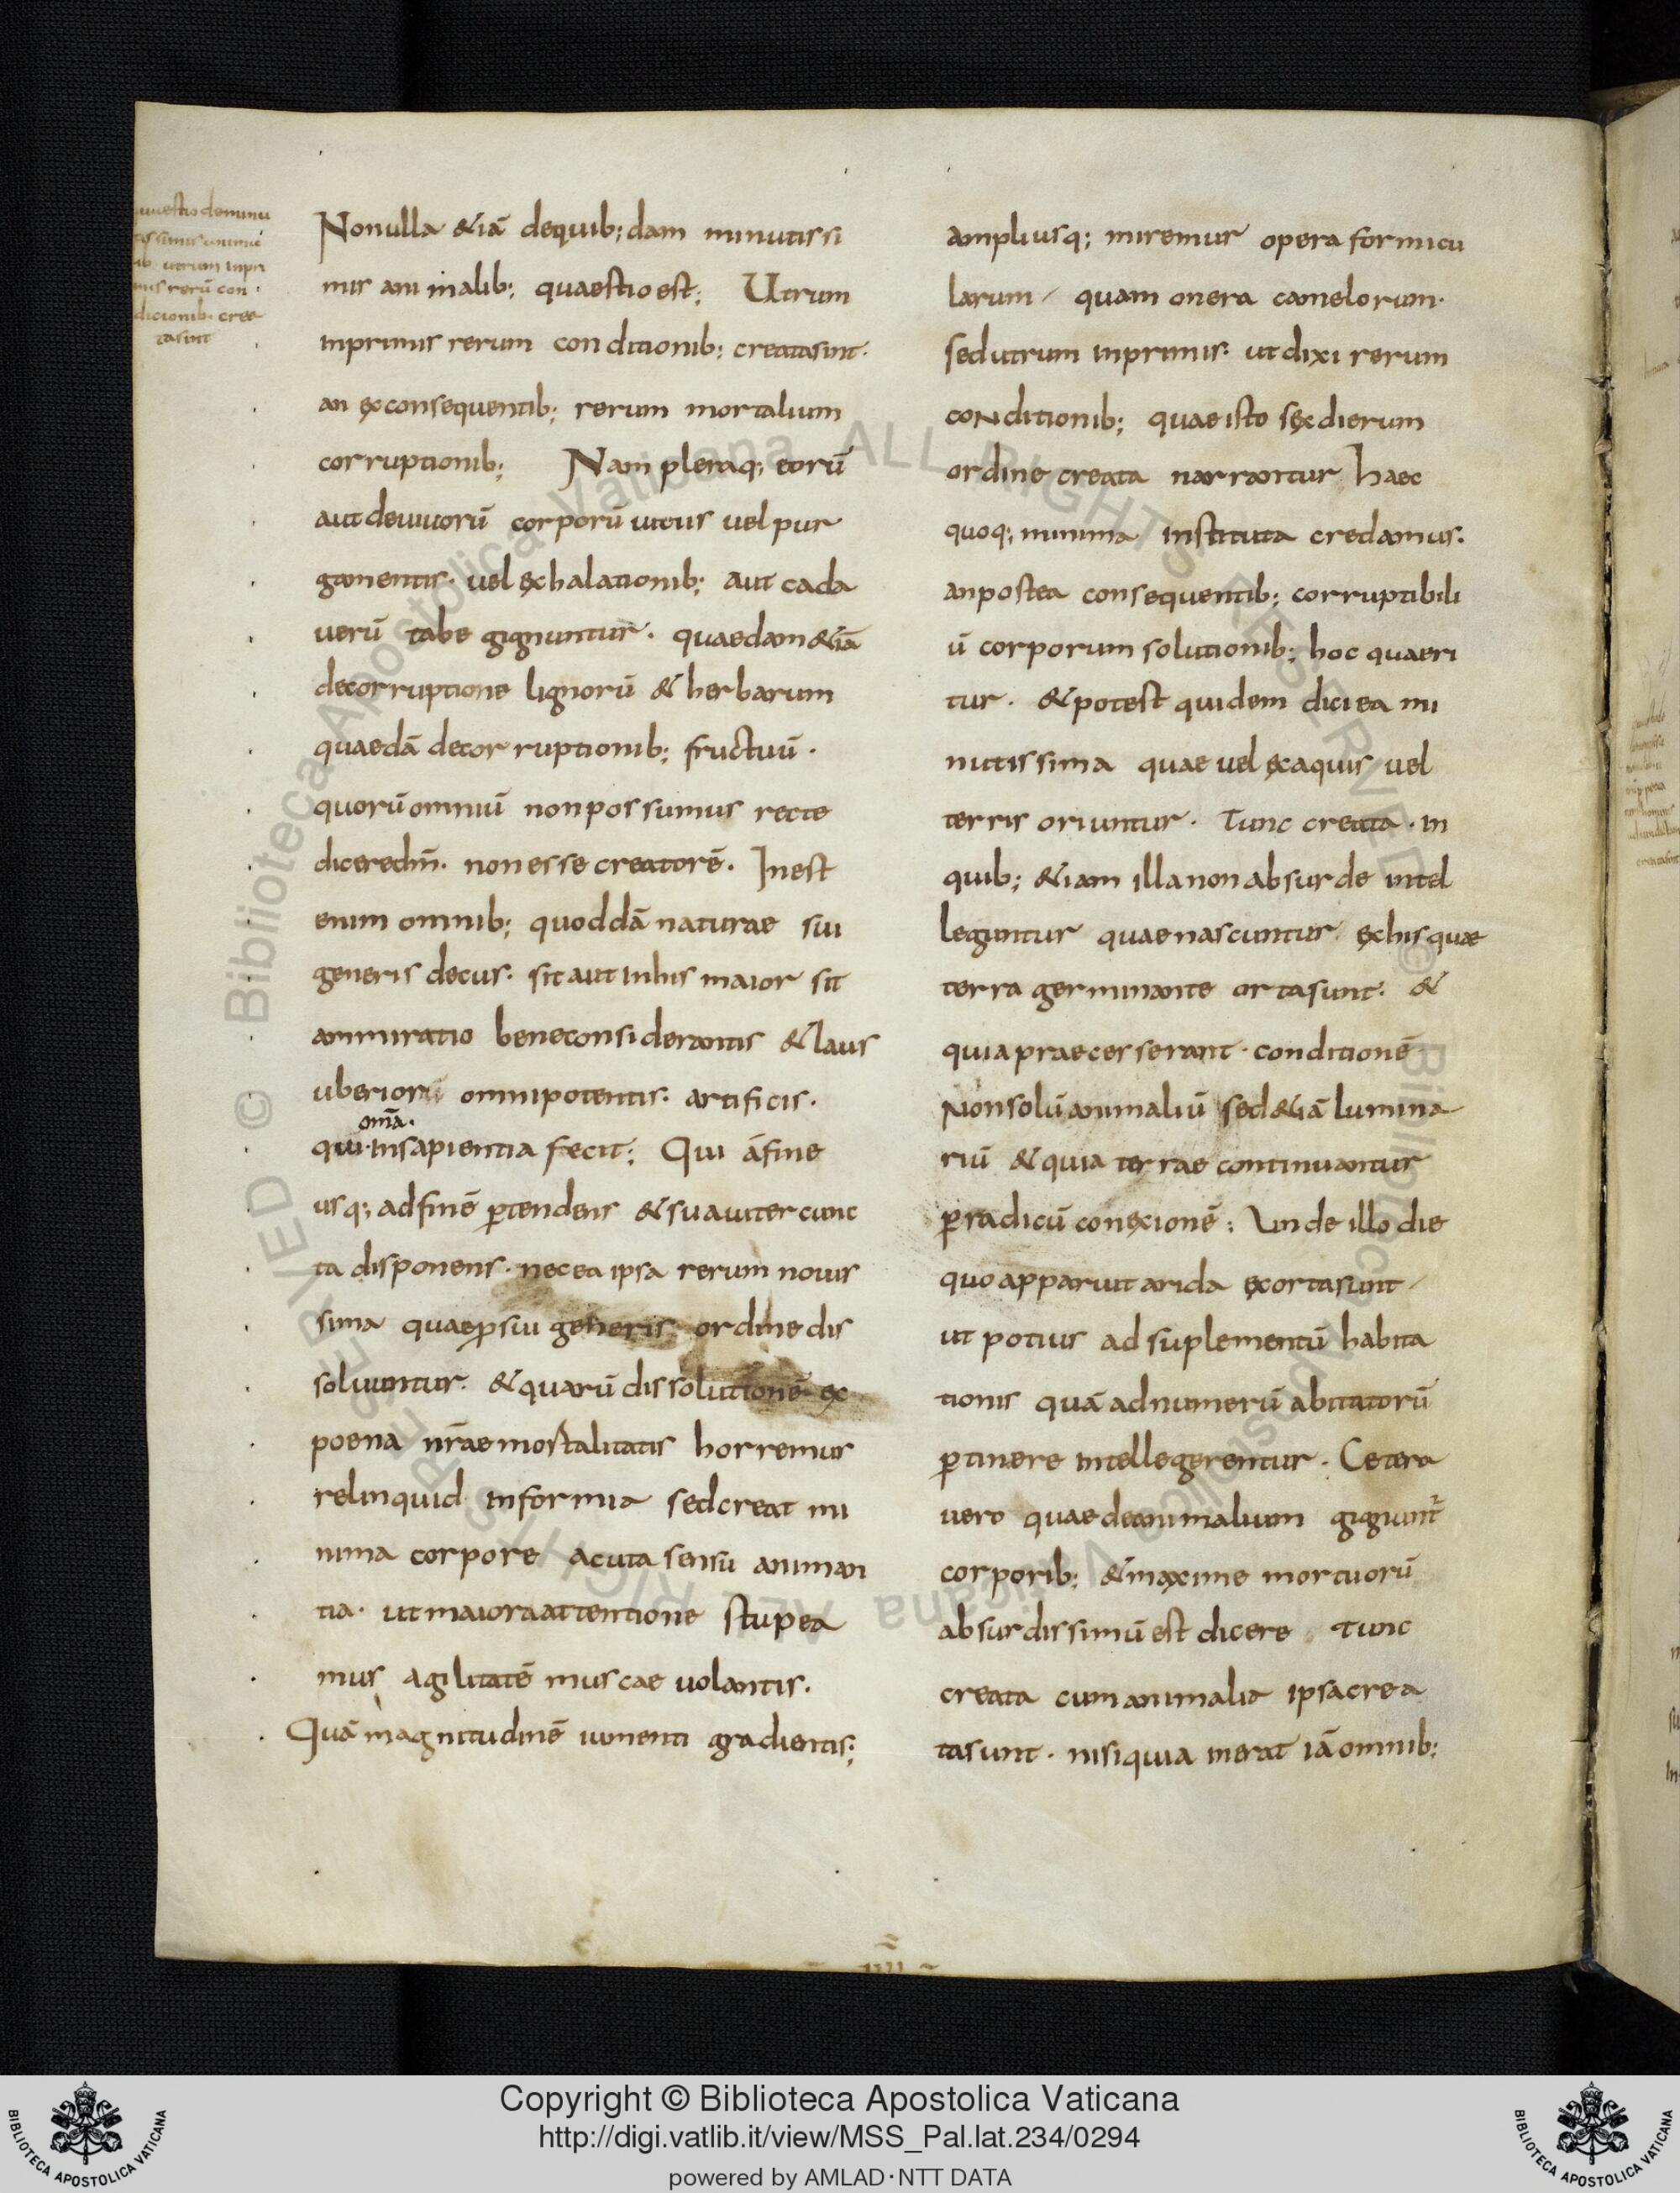 quaestio deminu
tissimis anima
lib. utrum inpri
mis rerū con
dicionib. crea
ta sint
Nonulla &iā dequib;dam minutissi
mis animalib; quaestio est; Utrum
inprimis rerum conditionib; creatasint.
an exconsequentib; rerum mortalium
corruptionib; Nam pleraq; eorū
aut deuiuorū corporū uitiis uel pur
gamentis. uel exhalationib; aut cada
uerū tabe gignuntur. quaedam &iā
decorruptione lignorū & herbarum
quaedā decorruptionib; fructuū.
quorū omniū nonpossumus recte
diceredm̄. nonesse creatorē. Inest
enim omnib; quoddā naturae sui
generis decus. sit aut inhis maior sit
ammiratio beneconsiderantis & laus
uberiorū omnipotentis. artificis.
omā.
qui.insapientia fecit; Qui áfine
usq; adfinē ꝑtendens & suauiter cunc
ta disponens. necea ipsa rerum nouis
sima quaeꝑsui generis. ordine dis
soluuntur. & quarū dissolutionē ex
poena nr̄ae mostalitatis horremus
relinquid informia sedcreat mi
nima corpore acuta sensū animan
tia. ut maioraattentione stupea
mus agilitatē muscae uolantis.
Quā magnitudinē iumenti gradientis;
ampliusq; miremur opera formicu
larum / quam onera camelorum.
sedutrum inprimis. utdixi rerum
coNditionib; quaeisto sexdierum
ordine creata narrantur haec
quoq; minima instituta credamus.
anpostea consequentib; corruptibili
ū corporum solutionib; hoc quaeri
tur. & potest quidem dici ea mi
nutissima quae uel exaquis uel
terris oriuntur. Tunc creata. in
quib; &iam illanon absurde intel
leguntur quaenascuntur exhisquae
terra germinante ortasunt. &
quia praecesserant. conditionē
Nonsolū animaliū sed &iā lumina
riū & quia terrae continuantur
ꝑradicū conexionē; Unde illo die
quo apparuit arida exortasunt /
ut potius ad suplementū habita
tionis quā adnumerū abitatorū
ꝑtinere intellegerentur. Cetera
uero quae deanimalium gigiunt̄
corporib; & maxime mortuorū
absurdissimū est dicere Tunc
creata cum animalia ipsacrea
tasunt. nisiquia inerat iā omnib;
Copyright © Biblioteca Apostolica Vaticana
http://digi.vatlib.it/view/MSS_Pal.lat.234/0294
powered by AMLAD·NTT DATA
BIBLIOTECA APOSTOLICA VATICANA
BIBLIOTECA APOSTOLICA VATICANA